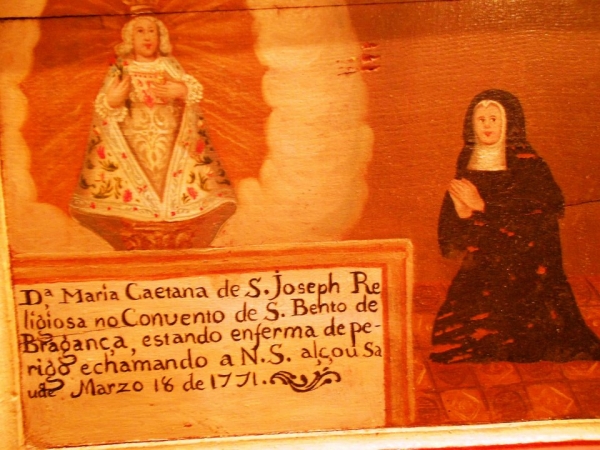 Dª Maria Caetana de S. Joseph Re
ligiosa no Convento de S. Bento de
Bragança, estando enferma de pe-
rigo echamando a N.S. alçou Sa
ude Marzo 18 de 1771.